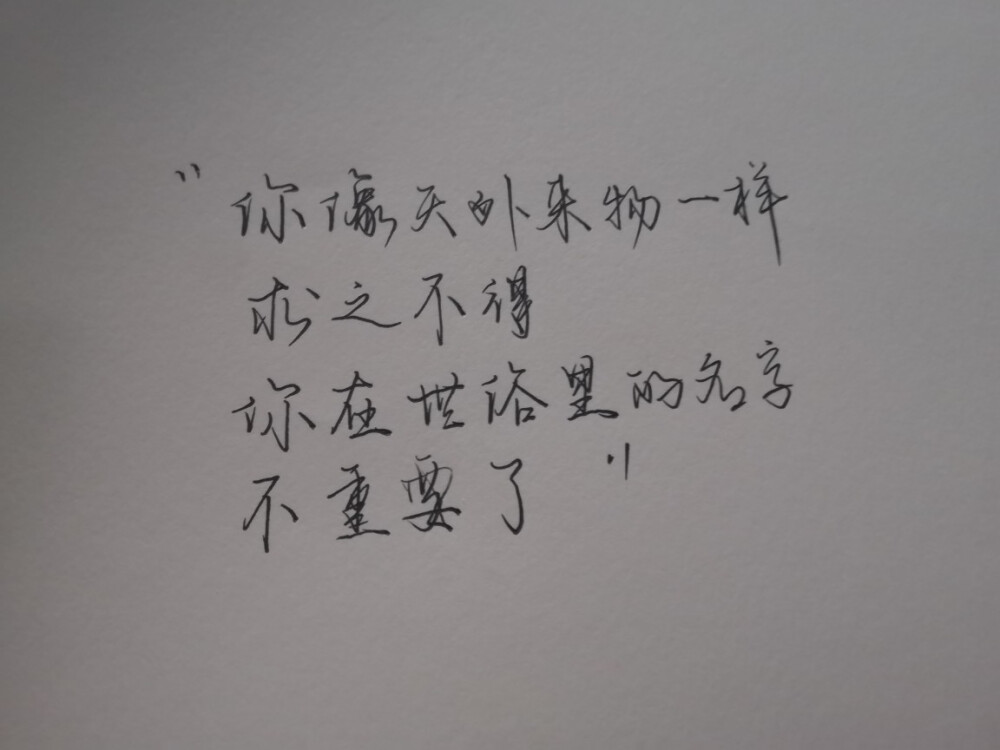 “你像天外来物一样
求之不得
你在世俗里的名字
不重要了”